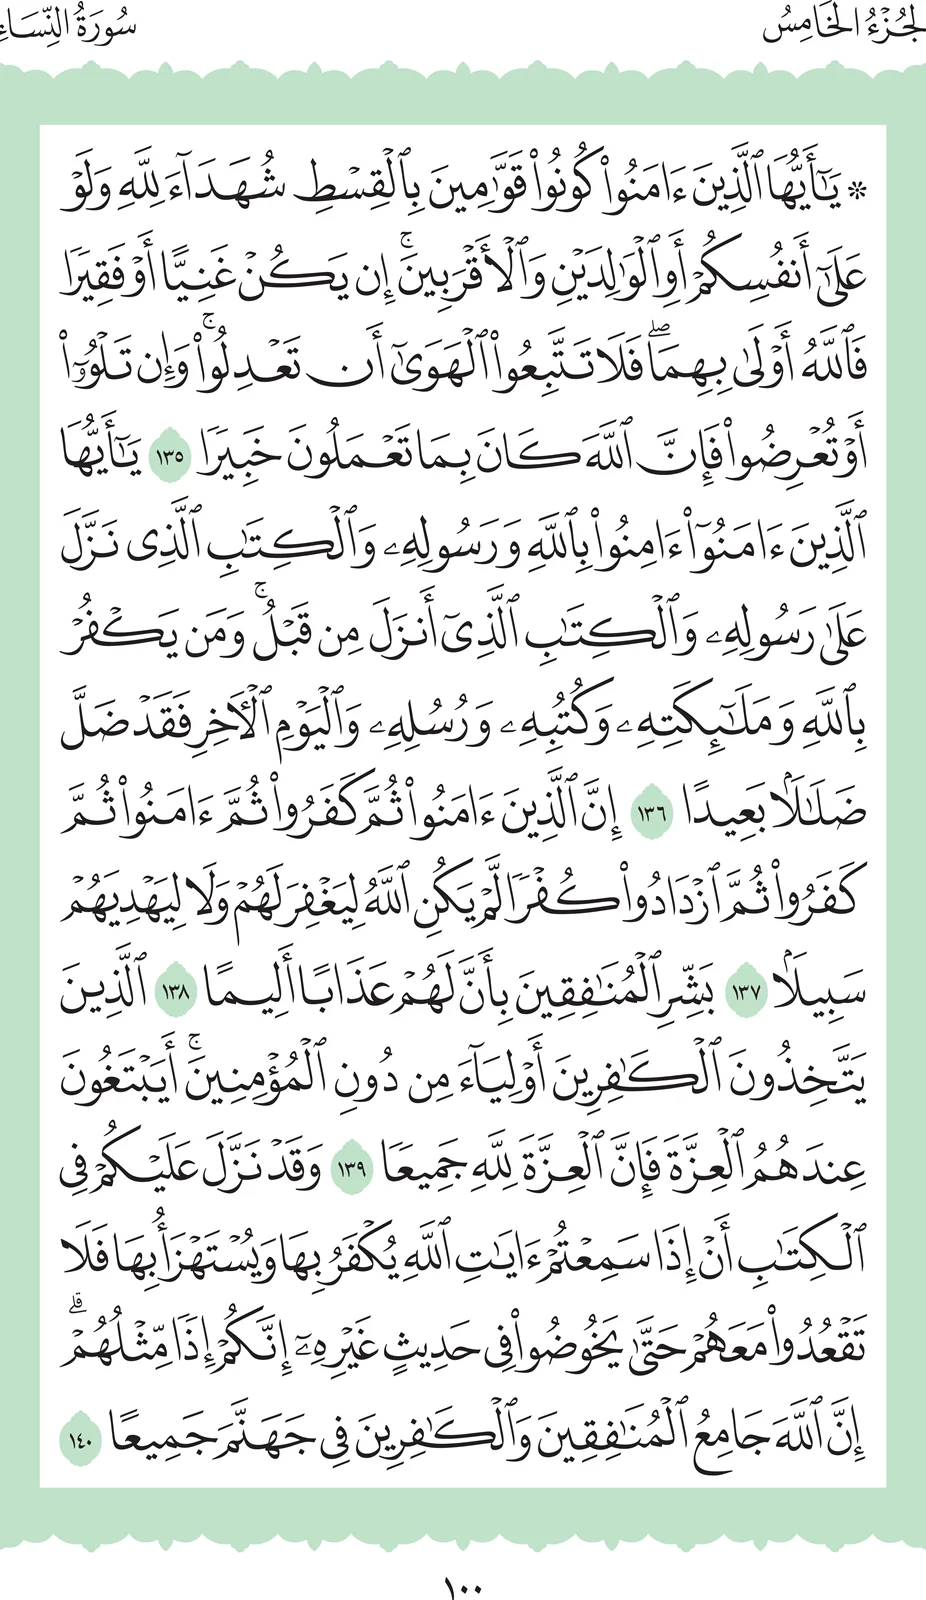 الجُزْءُ الخَامِسُ
سُورَةُ النِّسَاءِ
۞ يَٰٓأَيُّهَا ٱلَّذِينَ ءَامَنُوا۟ كُونُوا۟ قَوَّٰمِينَ بِٱلْقِسْطِ شُهَدَآءَ لِلَّهِ وَلَوْ
عَلَىٰٓ أَنفُسِكُمْ أَوِ ٱلْوَٰلِدَيْنِ وَٱلْأَقْرَبِينَ ۚ إِن يَكُنْ غَنِيًّا أَوْ فَقِيرًا
فَٱللَّهُ أَوْلَىٰ بِهِمَا ۖ فَلَا تَتَّبِعُوا۟ ٱلْهَوَىٰٓ أَن تَعْدِلُوا۟ ۚ وَإِن تَلْوُۥٓا۟
أَوْ تُعْرِضُوا۟ فَإِنَّ ٱللَّهَ كَانَ بِمَا تَعْمَلُونَ خَبِيرًا ١٣٥ يَٰٓأَيُّهَا
ٱلَّذِينَ ءَامَنُوٓا۟ ءَامِنُوا۟ بِٱللَّهِ وَرَسُولِهِۦ وَٱلْكِتَٰبِ ٱلَّذِى نَزَّلَ
عَلَىٰ رَسُولِهِۦ وَٱلْكِتَٰبِ ٱلَّذِىٓ أَنزَلَ مِن قَبْلُ ۚ وَمَن يَكْفُرْ
بِٱللَّهِ وَمَلَٰٓئِكَتِهِۦ وَكُتُبِهِۦ وَرُسُلِهِۦ وَٱلْيَوْمِ ٱلْـَٔاخِرِ فَقَدْ ضَلَّ
ضَلَٰلًۢا بَعِيدًا ١٣٦ إِنَّ ٱلَّذِينَ ءَامَنُوا۟ ثُمَّ كَفَرُوا۟ ثُمَّ ءَامَنُوا۟ ثُمَّ
كَفَرُوا۟ ثُمَّ ٱزْدَادُوا۟ كُفْرًا لَّمْ يَكُنِ ٱللَّهُ لِيَغْفِرَ لَهُمْ وَلَا لِيَهْدِيَهُمْ
سَبِيلًۢا ١٣٧ بَشِّرِ ٱلْمُنَٰفِقِينَ بِأَنَّ لَهُمْ عَذَابًا أَلِيمًا ١٣٨ ٱلَّذِينَ
يَتَّخِذُونَ ٱلْكَٰفِرِينَ أَوْلِيَآءَ مِن دُونِ ٱلْمُؤْمِنِينَ ۚ أَيَبْتَغُونَ
عِندَهُمُ ٱلْعِزَّةَ فَإِنَّ ٱلْعِزَّةَ لِلَّهِ جَمِيعًا ١٣٩ وَقَدْ نَزَّلَ عَلَيْكُمْ فِى
ٱلْكِتَٰبِ أَنْ إِذَا سَمِعْتُمْ ءَايَٰتِ ٱللَّهِ يُكْفَرُ بِهَا وَيُسْتَهْزَأُ بِهَا فَلَا
تَقْعُدُوا۟ مَعَهُمْ حَتَّىٰ يَخُوضُوا۟ فِى حَدِيثٍ غَيْرِهِۦٓ ۚ إِنَّكُمْ إِذًا مِّثْلُهُمْ ۗ
إِنَّ ٱللَّهَ جَامِعُ ٱلْمُنَٰفِقِينَ وَٱلْكَٰفِرِينَ فِى جَهَنَّمَ جَمِيعًا ١٤٠
١٠٠